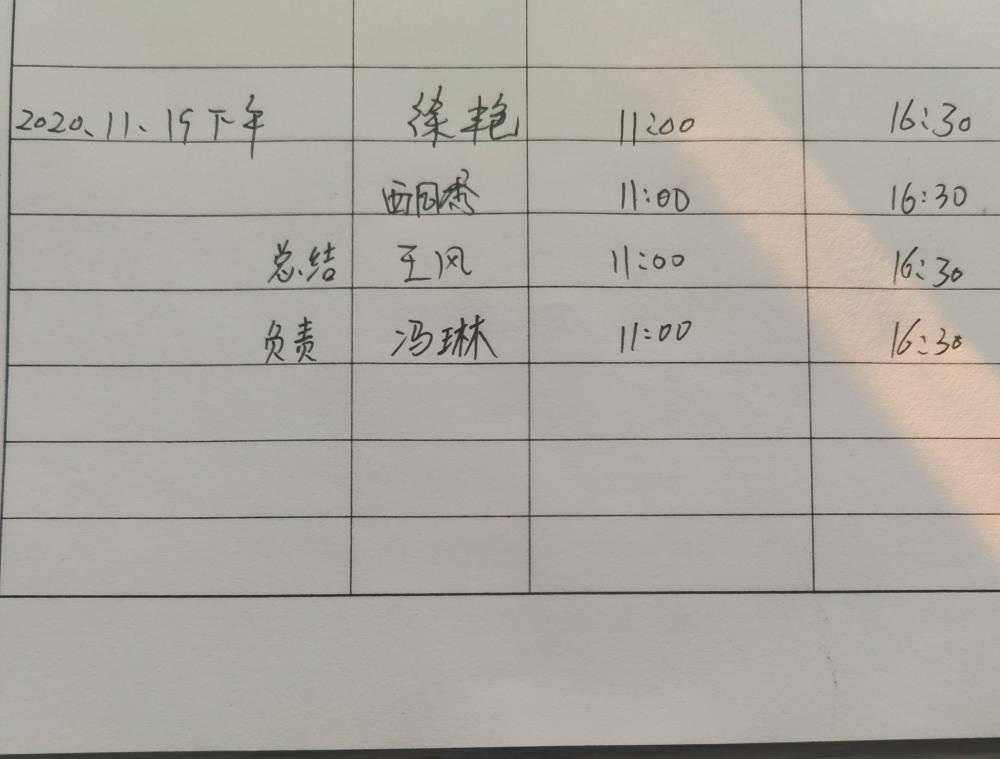 2020、11、19下午 徐艳 11:00 16:30
11:00 16:30
总结 王风 11:00 16:30
负责 冯琳 11:00 16:30